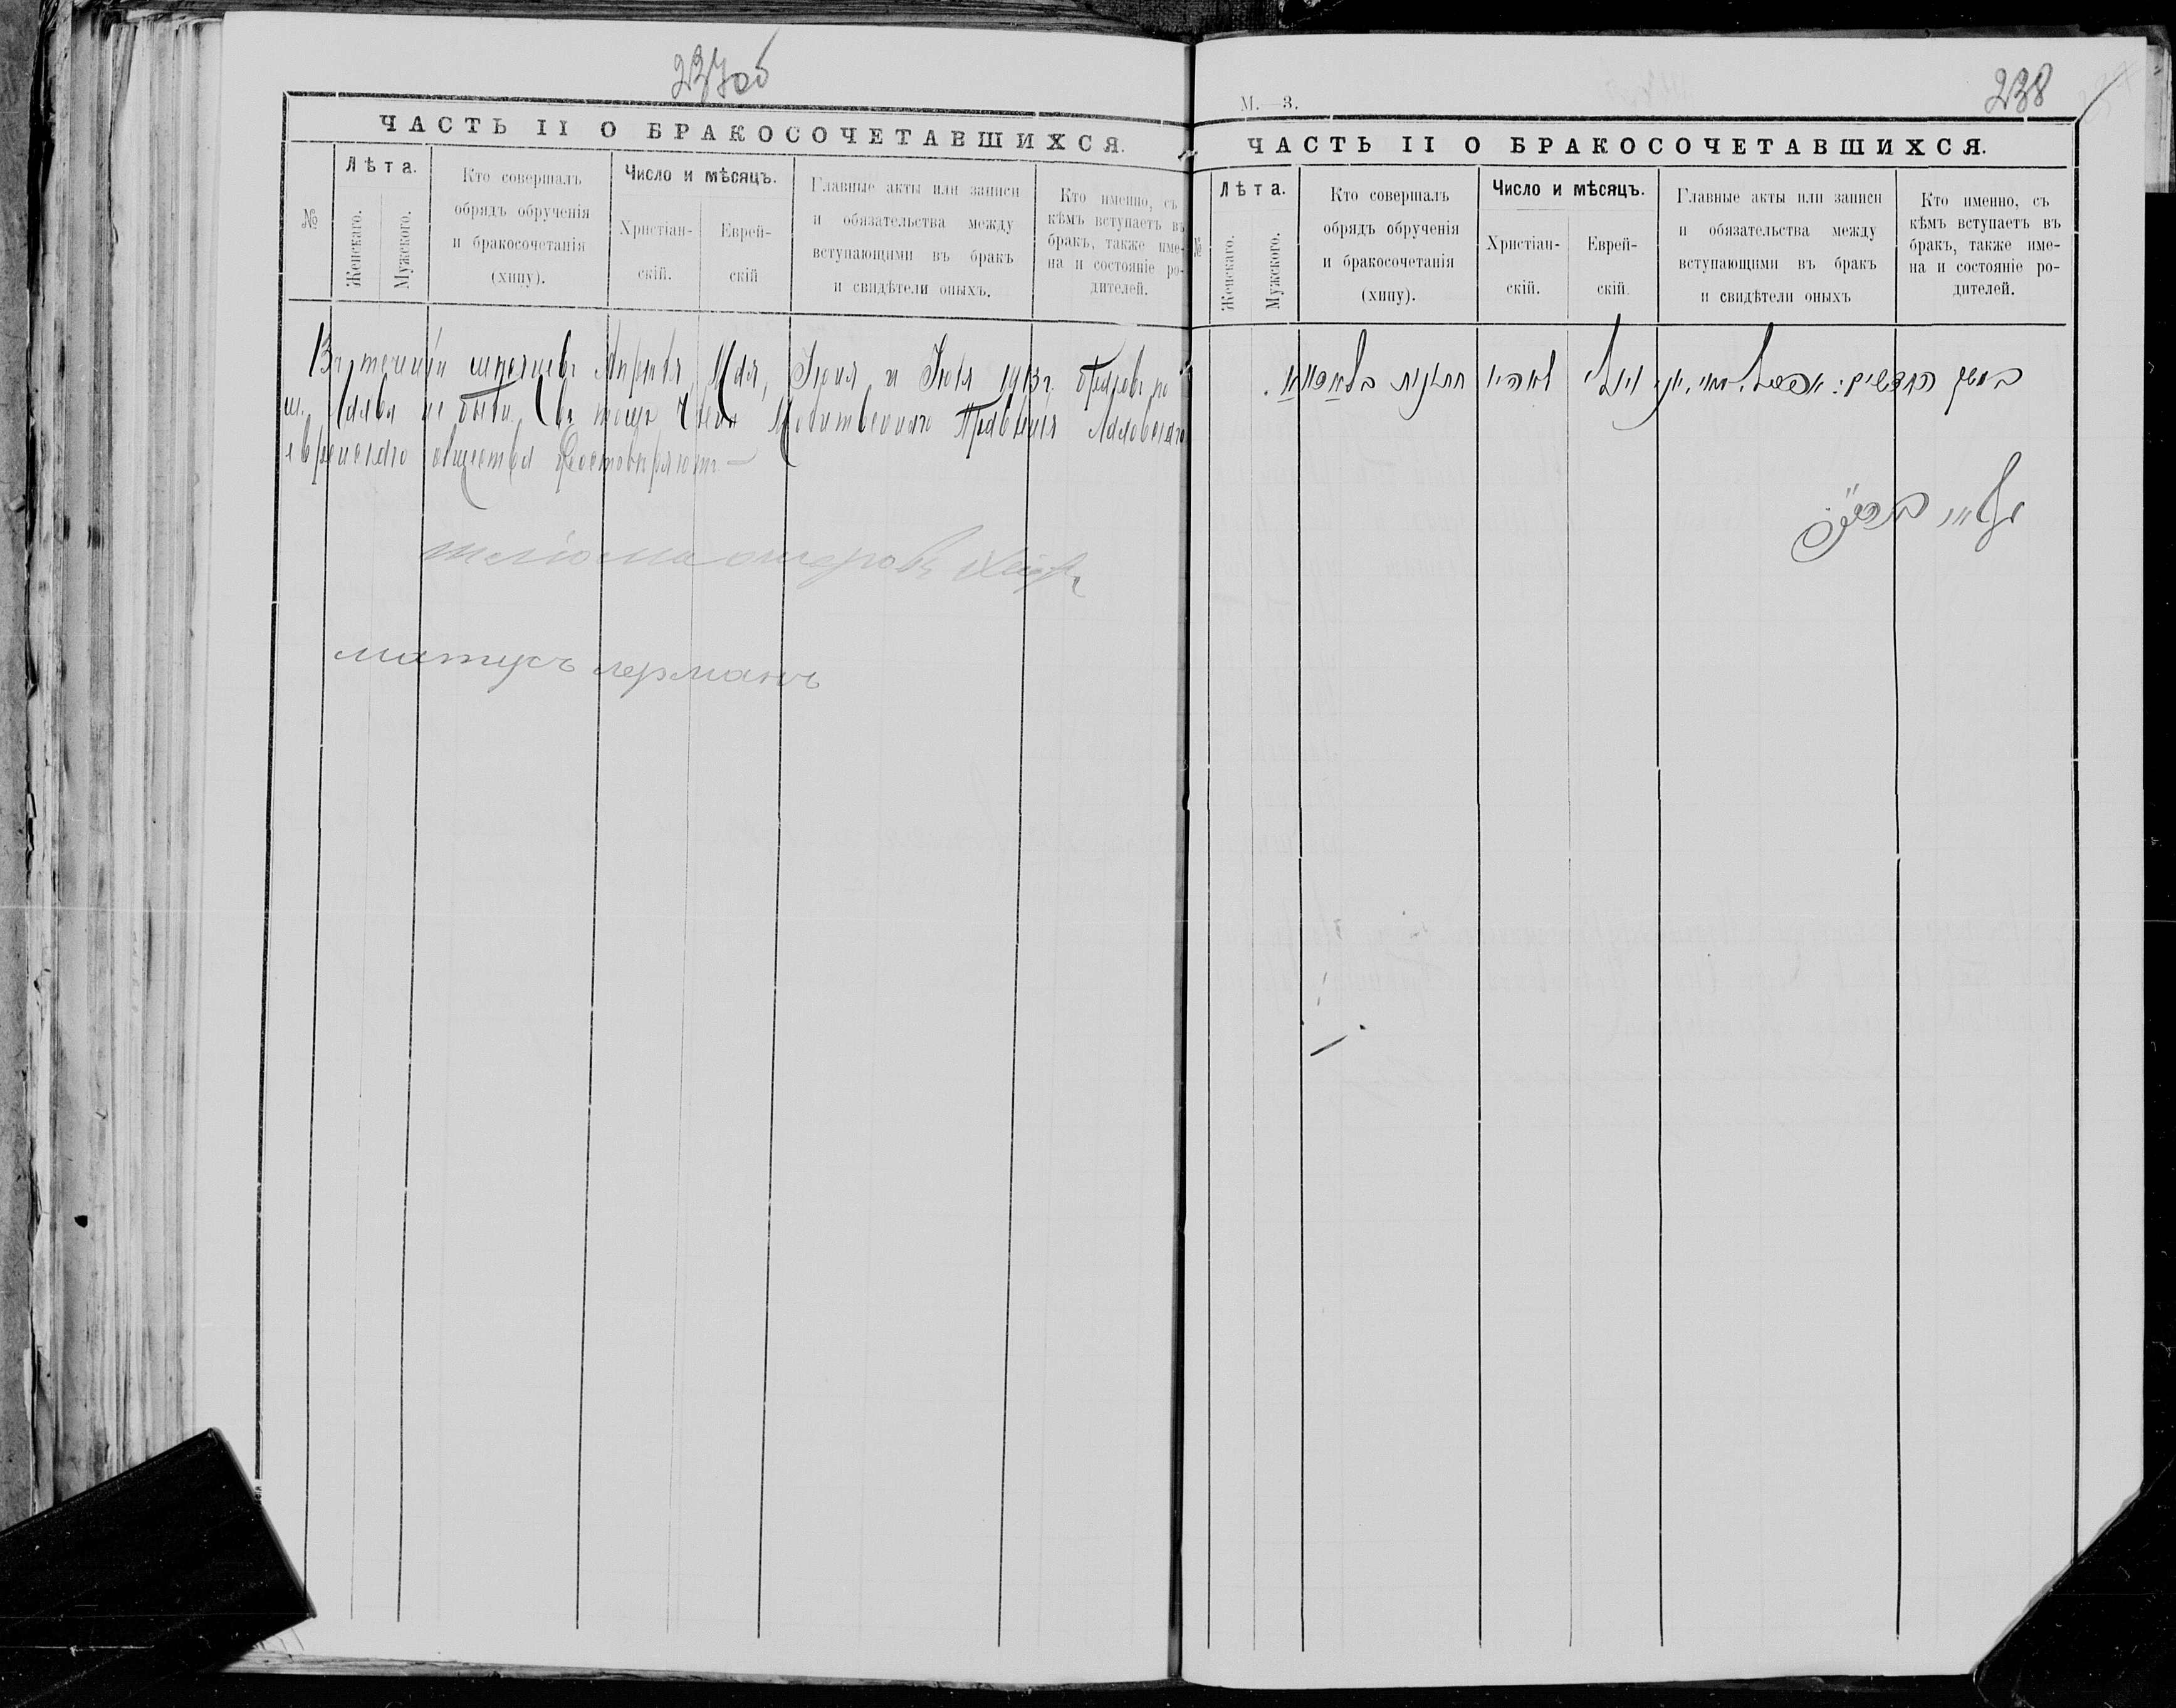 237об
ЧАСТЬ II О БРАКОСОЧЕТАВШИХСЯ.
№
Лѣта.
Женскаго.
Мужескаго.
Кто совершалъ
обрядъ обрученія
и бракосочетанія
(хипу).
Число и мѣсяцъ.
Христіан-
скій.
Еврей-
скій
Главные акты или записи
и обязательства между
вступающими въ бракъ
и свидѣтели оныхъ.
Кто именно, съ
кѣмъ вступаетъ въ
бракъ, также име-
на и состояніе ро-
дителей.
Въ теченіи мѣсяцевъ Апрѣля, Мая, Іюня и Іюля 1913 г. браковъ по
м. не было. Въ томъ Члены Молитвеннаго Правленія
еврейскаго общества удостовѣряютъ
матусъ лерманъ
М.—3.
238
ЧАСТЬ II О БРАКОСОЧЕТАВШИХСЯ.
№
Лѣта.
Женскаго.
Мужскаго.
Кто совершалъ
обрядъ обрученія
и бракосочетанія
(хипу).
Число и мѣсяцъ.
Христіан-
скій.
Еврей-
скій.
Главные акты или записи
и обязательства между
вступающими въ бракъ
и свидѣтели оныхъ
Кто именно, съ
кѣмъ вступаетъ въ
бракъ, также име-
на и состояніе ро-
дителей.
במשך החדשים: אפריל, מאי, יוני ויולי לא היו חתונות